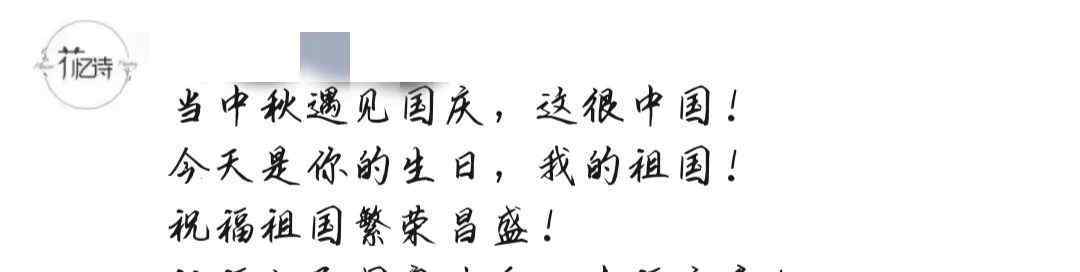 花忆诗
当中秋遇见国庆，这很中国！
今天是你的生日，我的祖国！
祝福祖国繁荣昌盛！